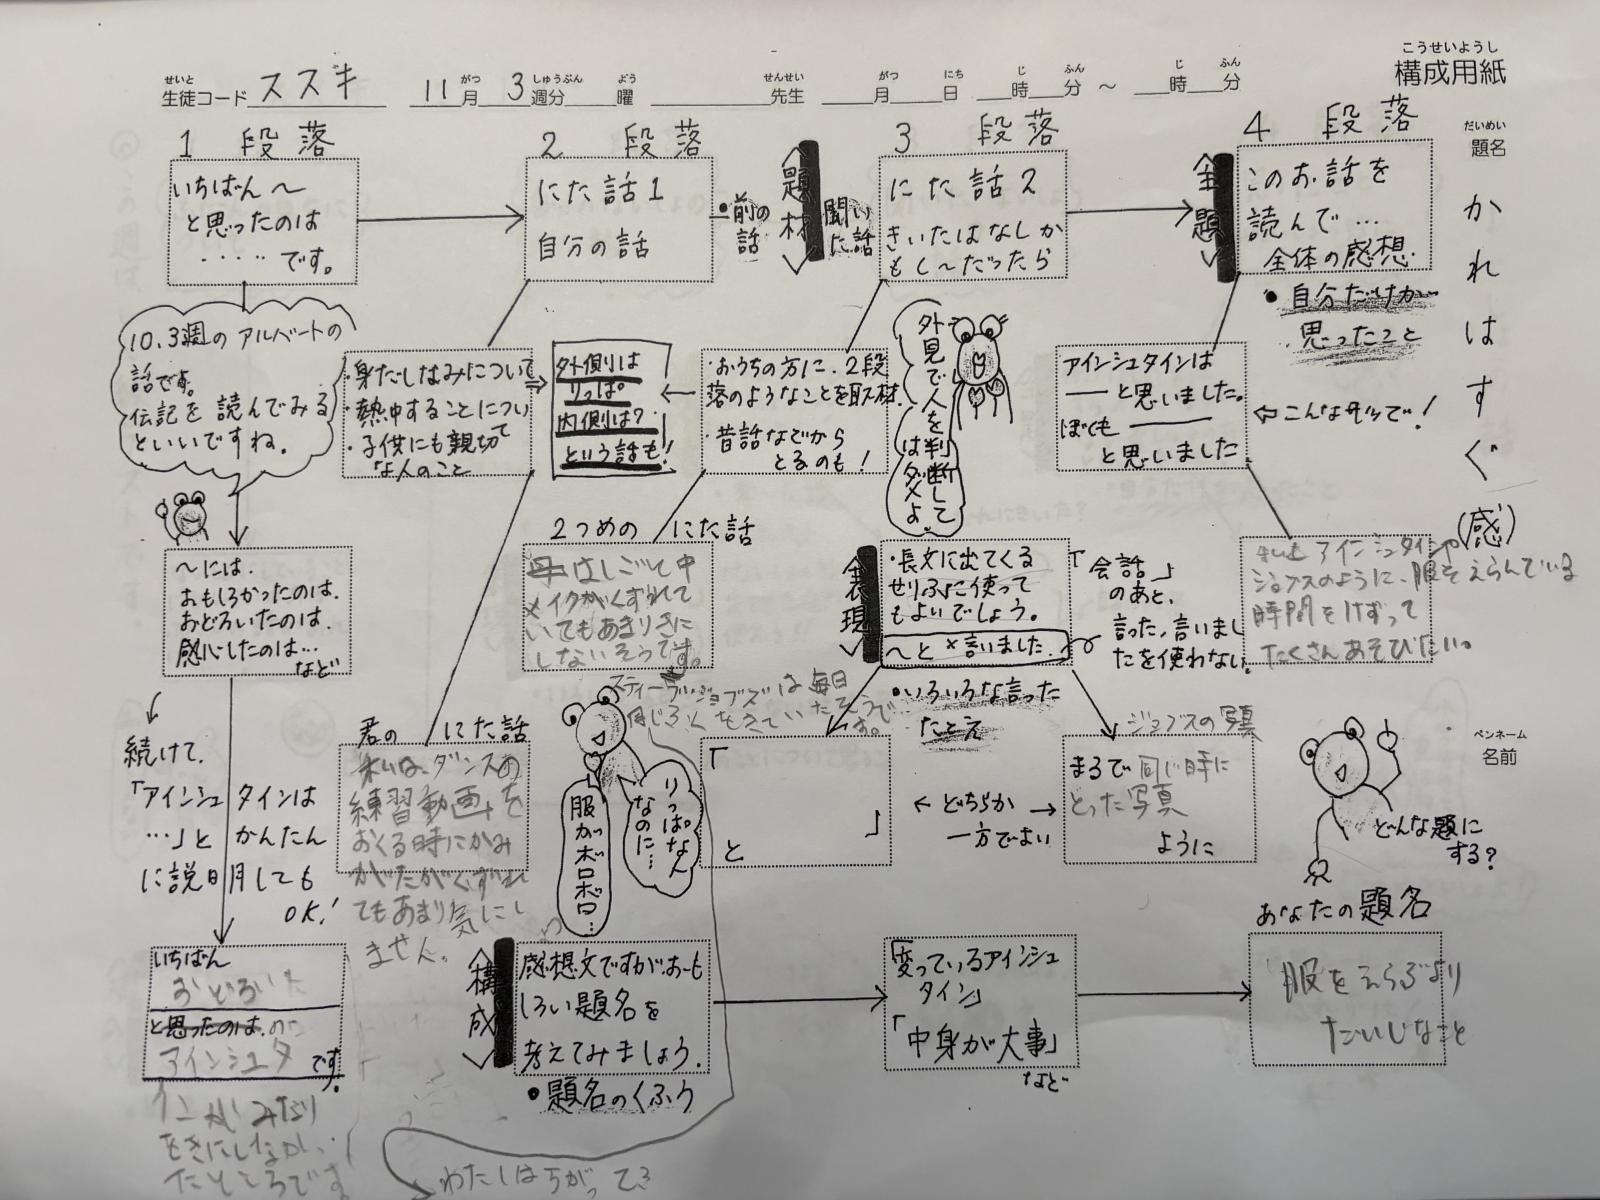 こうせいようし
構成用紙
せいと
生徒コード ススギ 11月 3週分 曜 先生 月 日 時 分 ～ 時 分
がつ しゅうぶん よう せんせい がつ にち じ ふん じ ふん
だいめい
題名
かれはすぐ(感)
1 段落
いちばん～
と思ったのは
・・・・・です。
10.3週のアルベートの
話です。
伝記を読んでみる
といいですね。
～には、
おもしろかったのは、
おどろいたのは、
感心したのは…
など
続けて、
「アインシュタインは
…」とかんたん
に説明しても
OK!
いちばん
おどろいた
と思ったのは、のは
アインシュタ です。
インがみなり
をきにしなかっ
たところです
2 段落
にた話1
自分の話
・前の
話
・身だしなみについて
・熱中することについ
て
・子供にも親切
な人のこと
外側は
りっぱ。
内側は?
という話も!
君の にた話
私は、ダンスの
練習動画を
おくる時にかみ
がたがくずれ
てもあまり気にし
ません。
〈題材〉
聞い
た話
3 段落
にた話2
きいたはなしか
もし～だったら
・おうちの方に、2段
落のようなことを取材。
・昔話などから
とるのも!
外見で人を判断して
はダメよ。
2つめの にた話
母はしごと中
メイクがくずれて
いてもあまりきに
しないそうです。
スティーブ・ジョブズは毎日
同じふくをきていたそうで
す。
りっぱな人
なのに…
服がボロボロ…
〈表現〉
・長文に出てくる
せりふに使って
もよいでしょう。
～と×言いました。
「会話」
のあと、
言った、言いまし
たを使わない。
・いろいろな言った
たとえ
「
」
と
← どちらか →
一方でよい
ジョブスの写真
まるで同じ時に
とった写真
ように
〈主題〉
4 段落
このお話を
読んで…
全体の感想。
・自分だけが
思ったこと
アインシュタインは
――と思いました。
ぼくも――
と思いました。
⇦こんなカンジで!
私もアインシュタインや
ジョブスのように、服をえらんでいる
時間をけずって
たくさんあそびたい。
ペンネーム
名前
どんな題に
する?
〈構成〉
感想文ですが、おも
しろい題名を
考えてみましょう。
・題名のくふう
「変っているアインシュ
タイン」
「中身が大事」
など
あなたの題名
服をえらぶより
だいじなこと
わたしはちがって